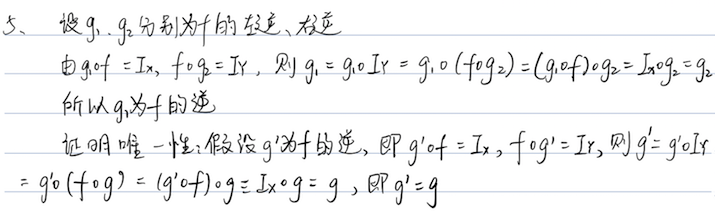 5、 设g₁、g₂分别为f的左逆、右逆
由g₁∘f = Iₓ, f∘g₂ = I_Y, 则 g₁ = g₁∘I_Y = g₁∘(f∘g₂) = (g₁∘f)∘g₂ = Iₓ∘g₂ = g₂
所以g₁为f的逆
证明唯一性：假设g'为f的逆, 即 g'∘f = Iₓ, f∘g' = I_Y, 则g' = g'∘I_Y
= g'∘(f∘g) = (g'∘f)∘g = Iₓ∘g = g, 即 g' = g